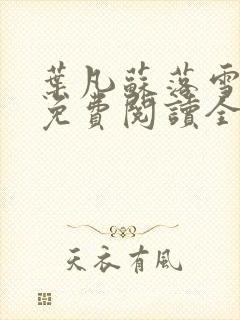 葉凡蘇落雪
免費閱讀全
天衣有風